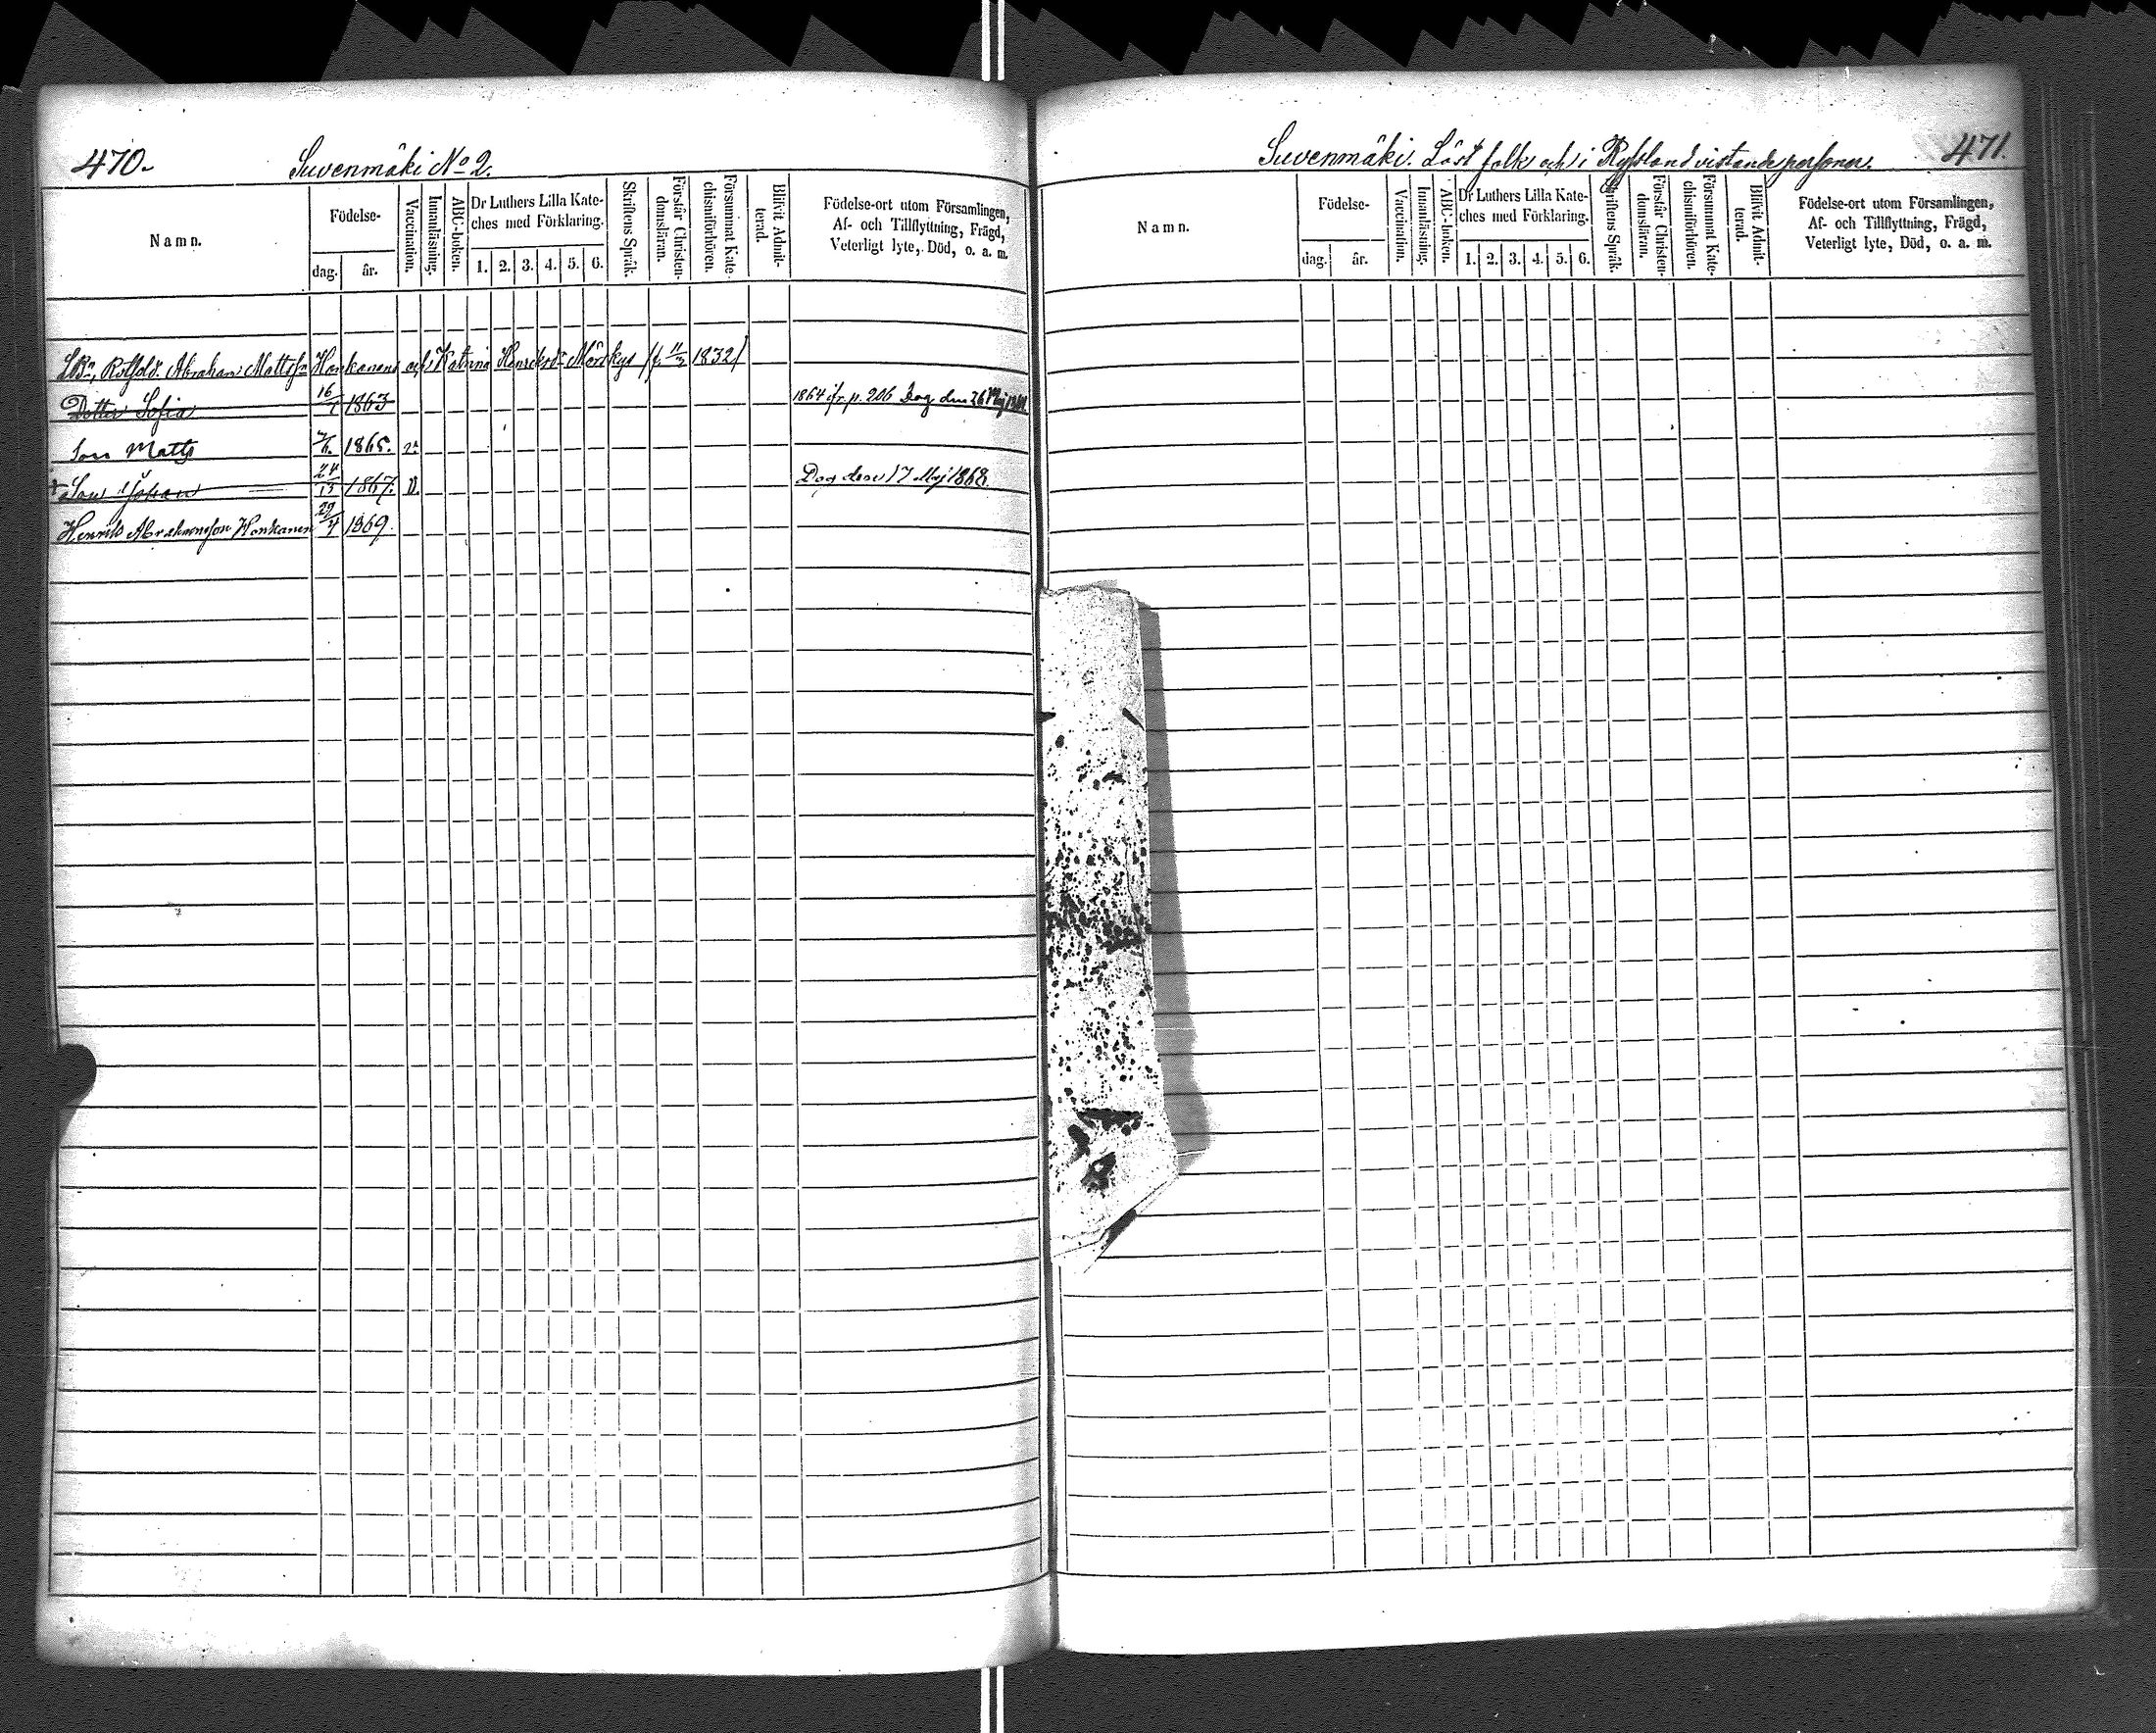 470.
Suvenmäki No 2.
Namn.
Födelse-
dag.
år.
Vaccination.
Innanläsning.
ABC-boken.
Dr Luthers Lilla Kate-
ches med Förklaring.
1. 2. 3. 4. 5. 6.
Skriftens Språk.
Förstår Christen-
domsläran.
Försummat Kate-
chismiförhören.
Blifvit Admit-
terad.
Födelse-ort utom Församlingen,
Af- och Tillflyttning, Frägd,
Veterligt lyte, Död, o. a. m.
Abraham Mattss Honkanens och Katrina Henriksdr 11/2 1832
Dotter Sofia 16/1 1863 1864 ifr. p. 206 Dog den 26 Maj
Son Matts 1865.
Son Johan 24/12 1867. Dog den 17 Maj 1868.
Henrik Abrahamsson Honkanen 29/4 1869.
Suvenmäki. Löst folk och i Ryssland vistande personer.
471.
Namn.
Födelse-
dag.
år.
Vaccination.
Innanläsning.
ABC-boken.
Dr Luthers Lilla Kate-
ches med Förklaring.
1. 2. 3. 4. 5. 6.
Skriftens Språk.
Förstår Christen-
domsläran.
Försummat Kate-
chismiförhören.
Blifvit Admit-
terad.
Födelse-ort utom Församlingen,
Af- och Tillflyttning, Frägd,
Veterligt lyte, Död, o. a. m.